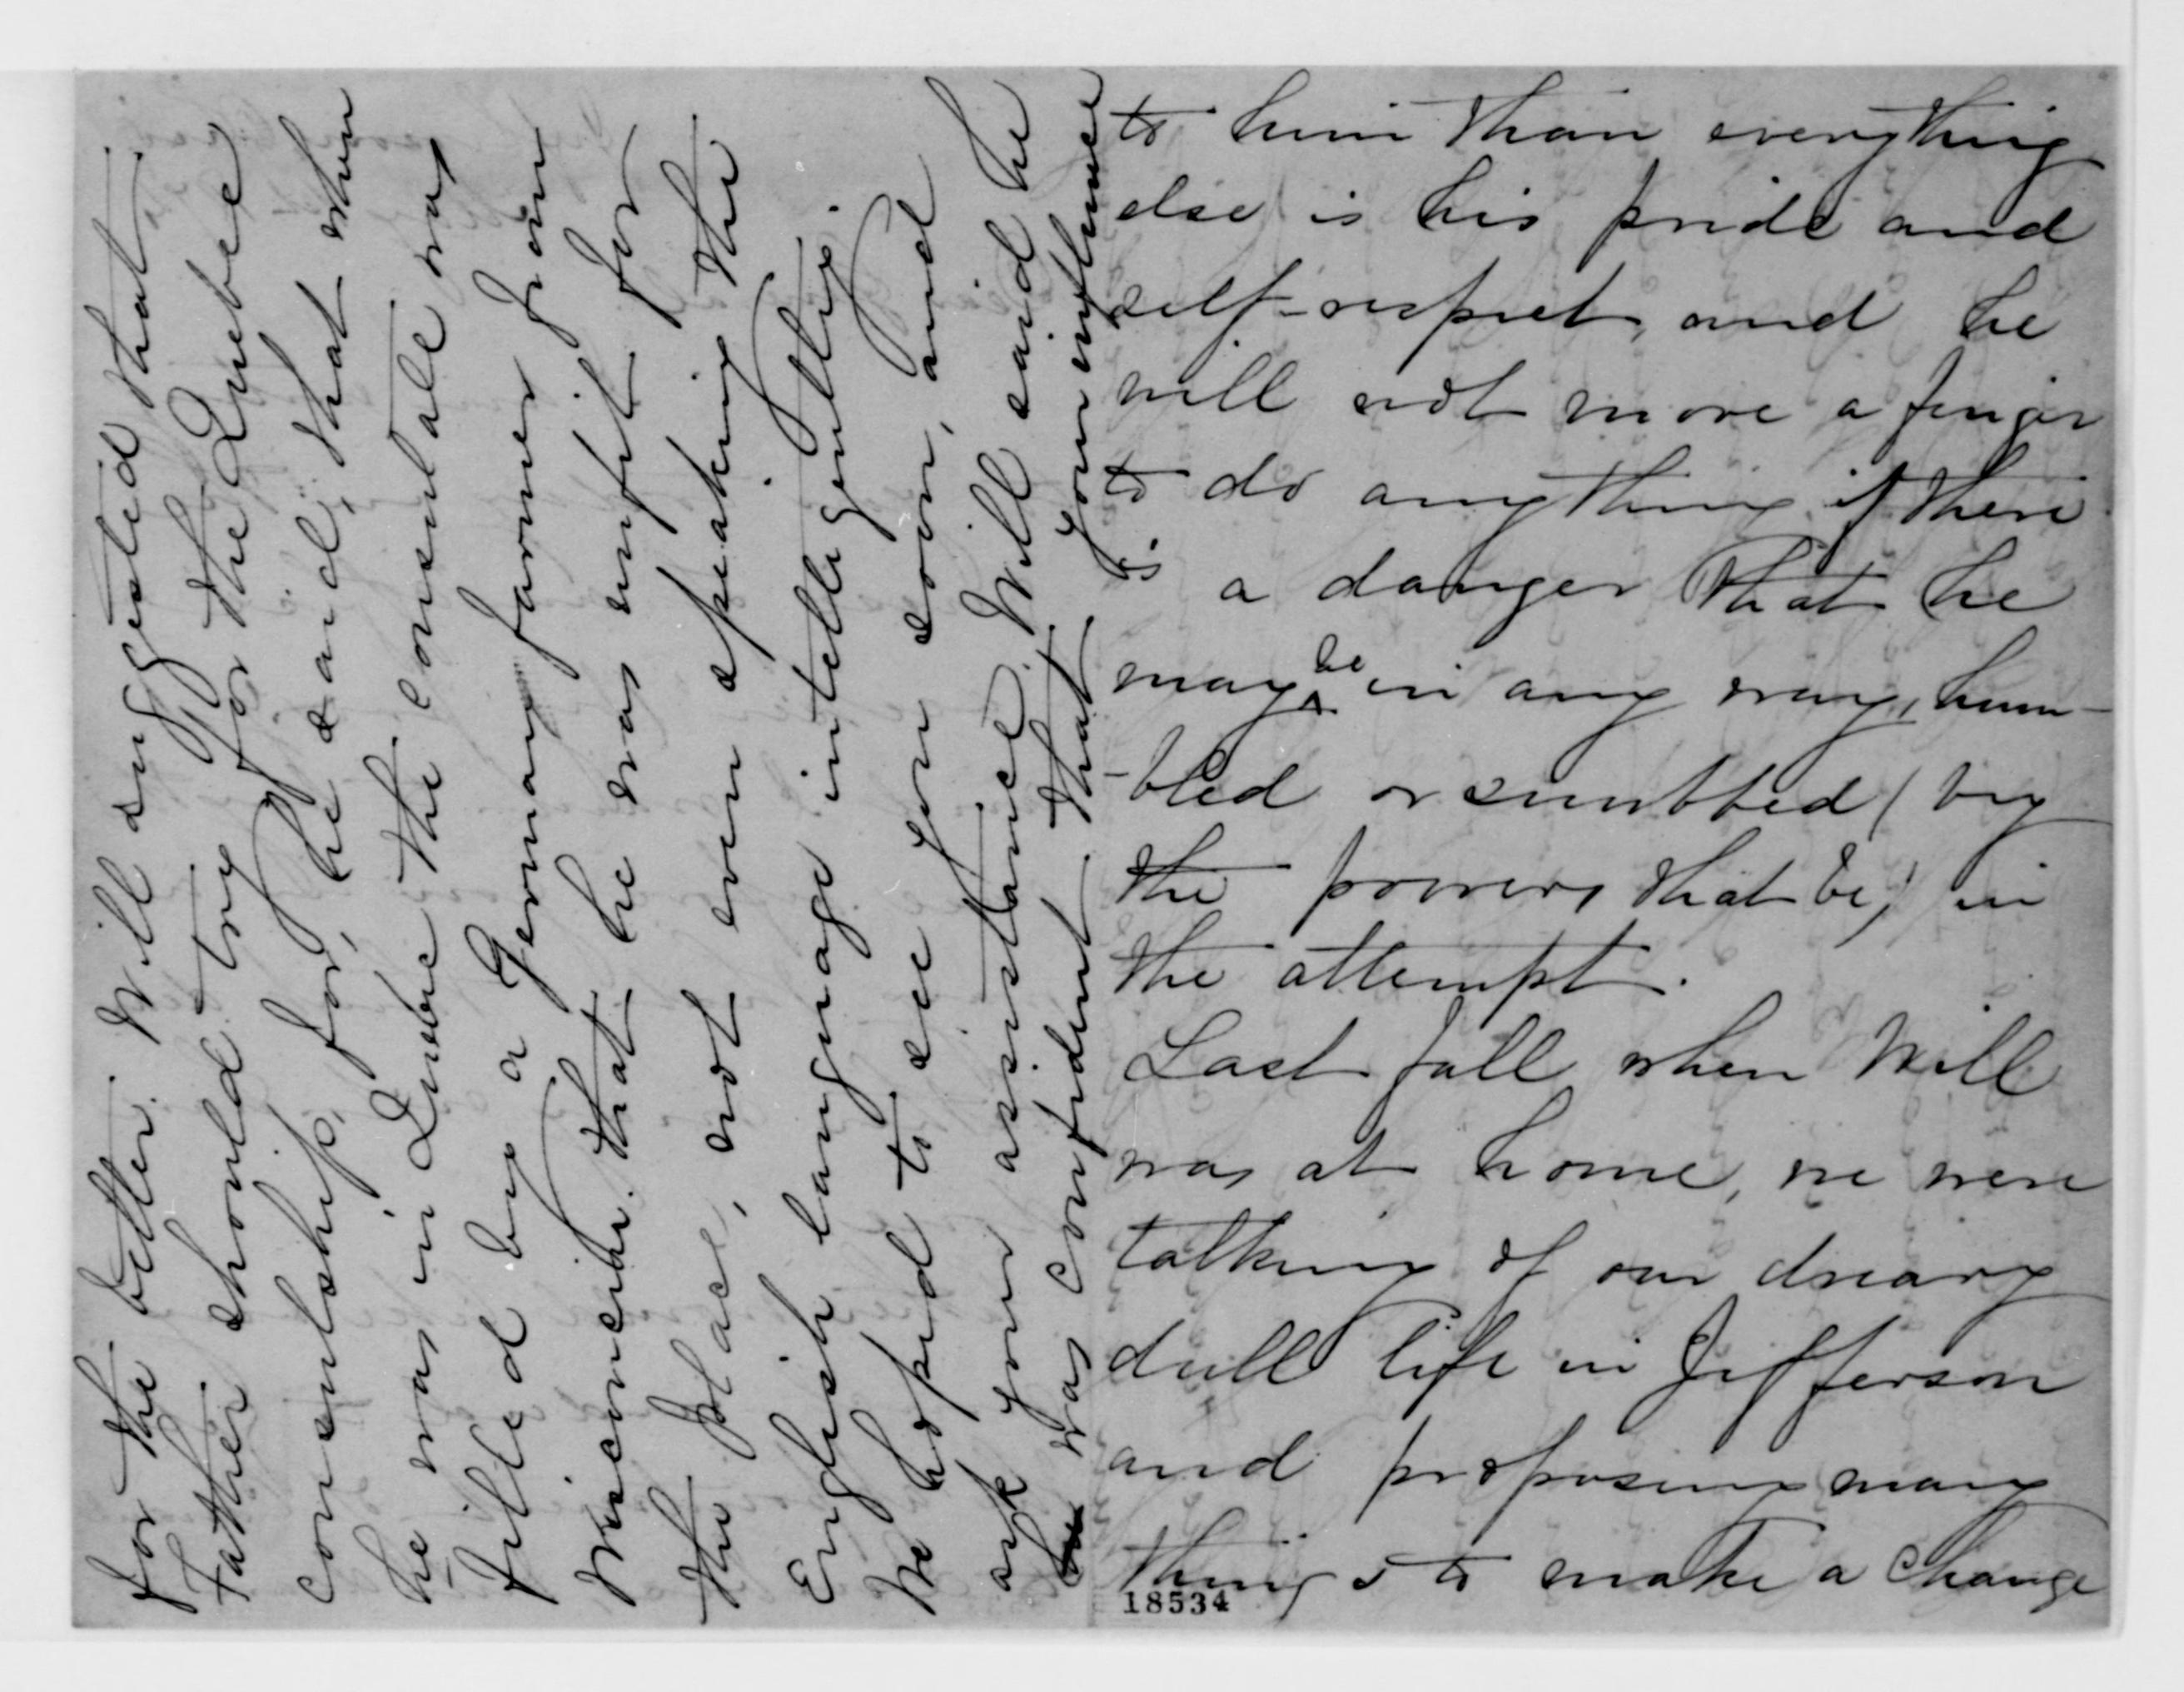 to him than everything
else is his pride and
self-respect, and he
will not move a finger
to do anything if there
is a danger that he
may be in any way, hum-
-bled or snubbed (by
the powers that be,) in
the attempt.
Last fall when Will
was at home, we were
talking of our dreary
dull life in Jefferson
and proposing many
things to make a change
18534
for the better. Will suggested that
Father should try for the Quebec
consulship, for, he said, that when
he was in Quebec the consulate was
filled by a German farmer from
Wisconsin. that he was unfit for
the place, not even speaking the
English language intelligently.
We hoped to see you soon, and
ask your assistance. Will said he
was confident that your influence